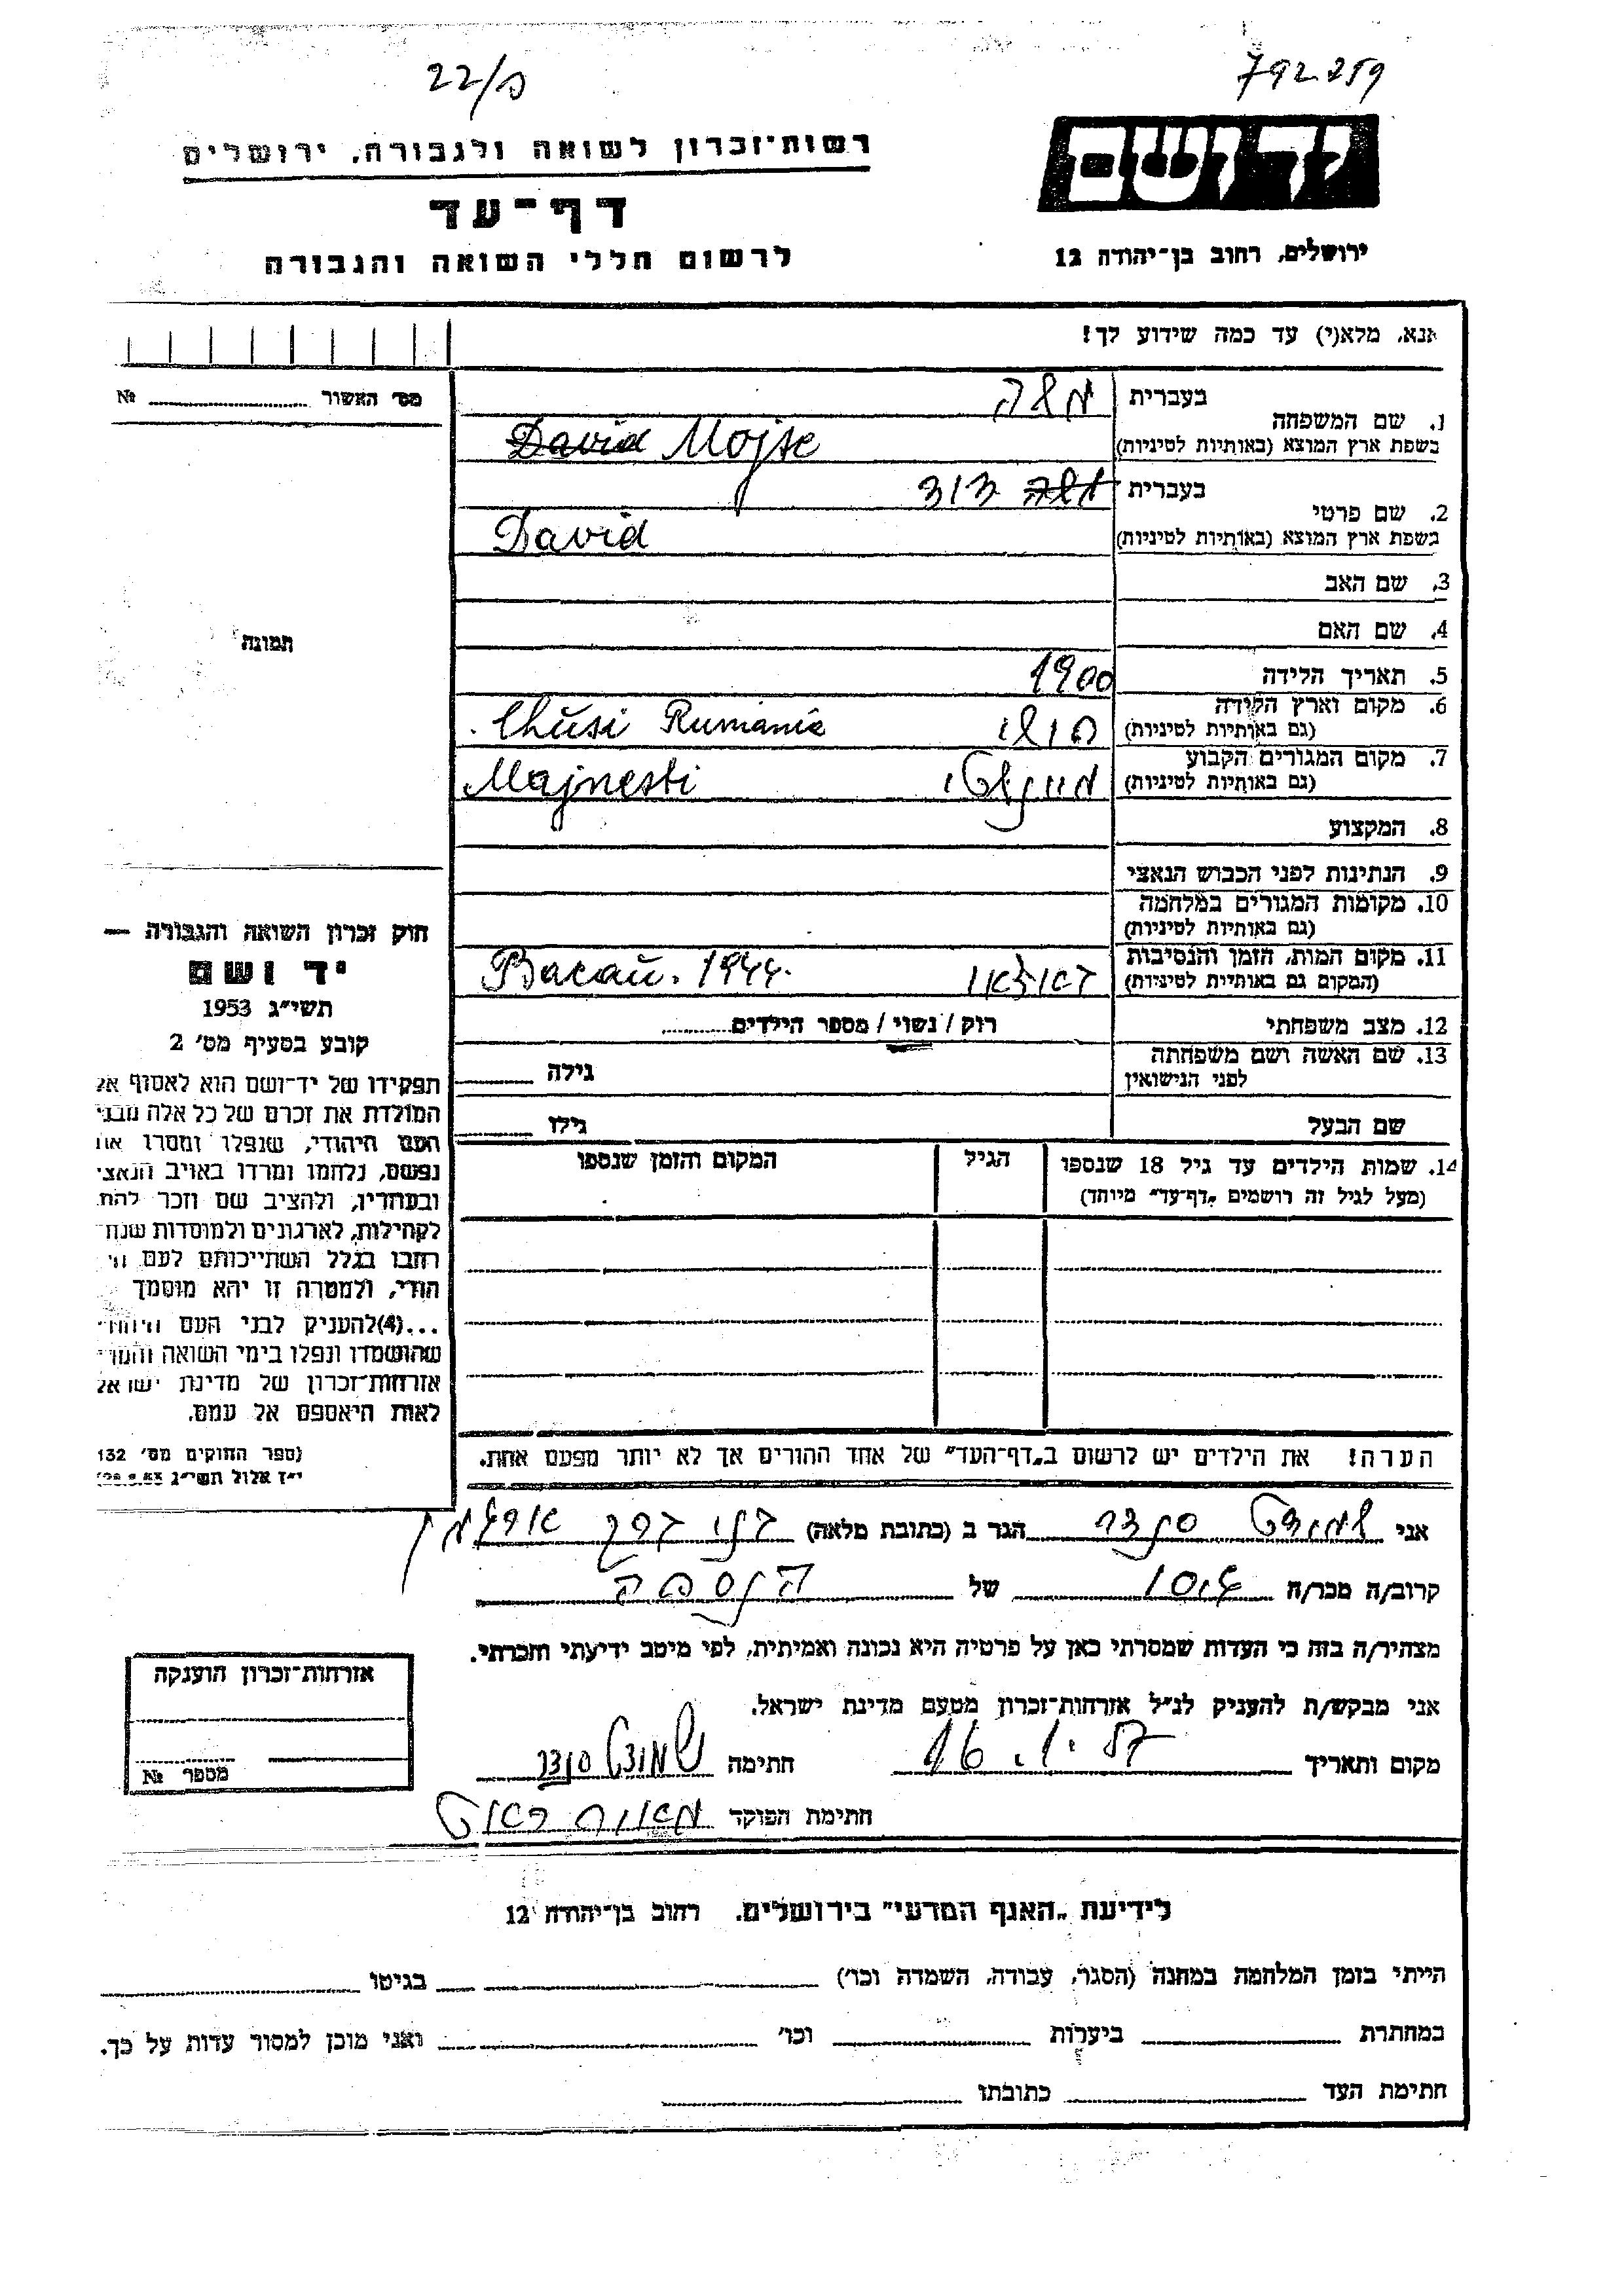 22/ח
792259
רשות־זכרון לשואה ולגבורה, ירושלים
דף־עד
לרשום חללי השואה והגבורה
יד ושם
ירושלים, רחוב בן־יהודה 12
אנא, מלא(י) עד כמה שידוע לך!
מס׳ האשור № 
1. שם המשפחה בעברית משה
בשפת ארץ המוצא (באותיות לטיניות) David Mojse
2. שם פרטי בעברית משה דוד
בשפת ארץ המוצא (באותיות לטיניות) David
3. שם האב
4. שם האם
תמונה
5. תאריך הלידה 1900
6. מקום וארץ הלידה (גם באותיות לטיניות) חושי Chusi Rumania
7. מקום המגורים הקבוע (גם באותיות לטיניות) Majnesti
8. המקצוע
9. הנתינות לפני הכבוש הנאצי
10. מקומות המגורים במלחמה (גם באותיות לטיניות)
11. מקום המות, הזמן והנסיבות (המקום גם באותיות לטיניות) Bacau. 1944.
12. מצב משפחתי רוק / נשוי / מספר הילדים
13. שם האשה ושם משפחתה לפני הנישואין גילה
שם הבעל גילו
14. שמות הילדים עד גיל 18 שנספו (מעל לגיל זה רושמים „דף־עד״ מיוחד) הגיל המקום והזמן שנספו
הערה! את הילדים יש לרשום ב„דף־העד״ של אחד ההורים אך לא יותר מפעם אחת.
חוק זכרון השואה והגבורה —
יד ושם
תשי״ג 1953
קובע בסעיף מס׳ 2
תפקידו של יד־ושם הוא לאסוף אל
המולדת את זכרם של כל אלה מבני
העם היהודי, שנפלו ומסרו את
נפשם, נלחמו ומרדו באויב הנאצי
ובעוזריו, ולהציב שם וזכר להם
לקהילות, לארגונים ולמוסדות שנח־
רבו בגלל השתייכותם לעם הי־
הודי, ולמטרה זו יהא מוסמך
...(4)להעניק לבני העם היהודי
שהושמדו ונפלו בימי השואה והמרי
אזרחות־זכרון של מדינת ישראל
לאות היאספם אל עמם.
(ספר החוקים מס׳ 132
י״ז אלול תשי״ג 28.8.53)
אני שמואל סנדר הגר ב (כתובת מלאה) בני ברק
קרוב/ה מכר/ה של הנספה
מצהיר/ה בזה כי העדות שמסרתי כאן על פרטיה היא נכונה ואמיתית, לפי מיטב ידיעתי והכרתי.
אני מבקש/ת להעניק לנ״ל אזרחות־זכרון מטעם מדינת ישראל.
מקום ותאריך חתימה
חתימת הפוקד
אזרחות־זכרון הוענקה
מספר №
לידיעת „האגף המדעי״ בירושלים. רחוב בן־יהודה 12
הייתי בזמן המלחמה במחנה (הסגר, עבודה, השמדה וכו׳) בגיטו
במחתרת ביערות וכו׳ ואני מוכן למסור עדות על כך.
חתימת העד כתובתו